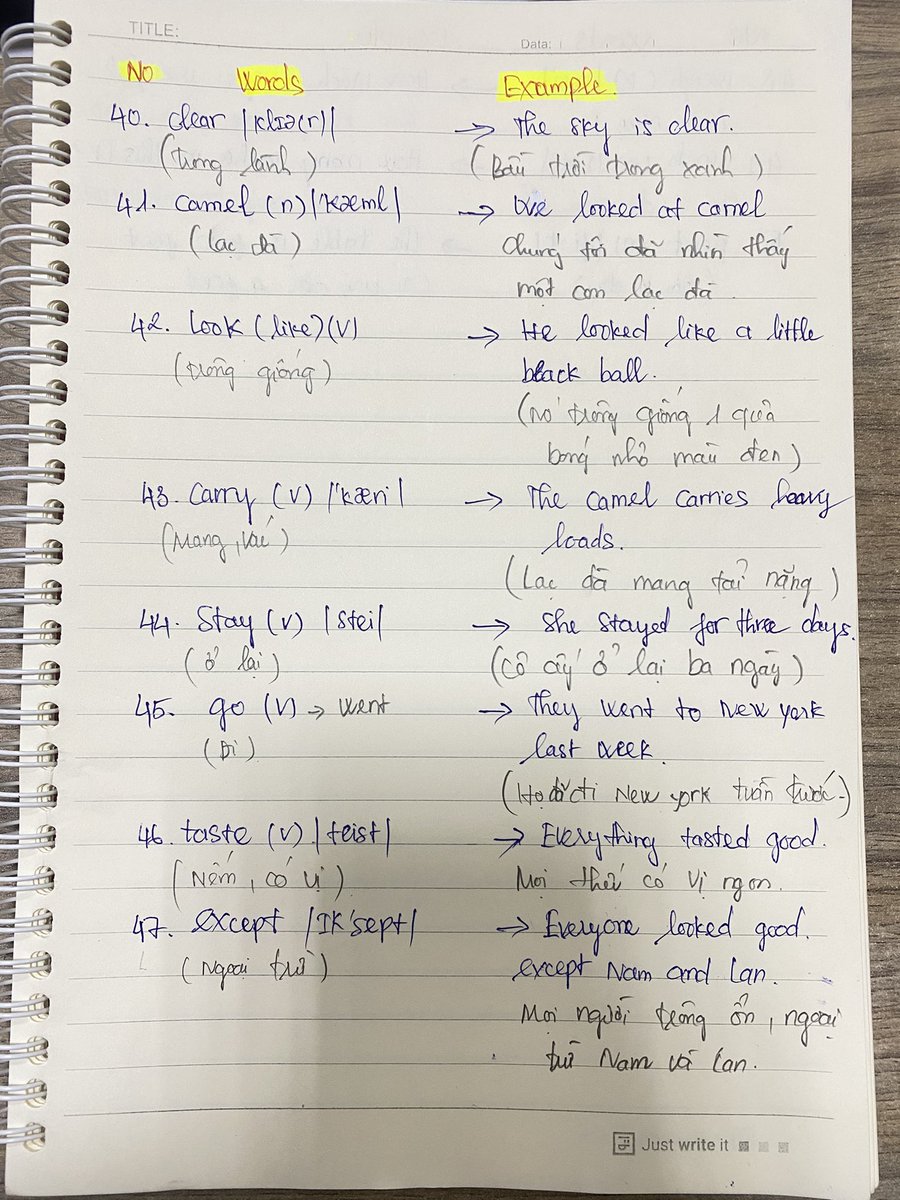 TITLE:
Data:
No Words Example.
40. clear |klɪə(r)| → The sky is clear.
(trong lành) (Bầu trời trong xanh)
41. Camel (n) |'kæml| → We looked at camel
(Lạc đà) Chúng tôi đã nhìn thấy
một con lạc đà.
42. Look (like) (V) → He looked like a little
(trông giống) black ball.
(nó trông giống 1 quả
bóng nhỏ màu đen)
43. Carry (V) |'kæri| → The camel carries heavy
(Mang, vác) loads.
(Lạc đà mang tải nặng)
44. Stay (V) |stei| → She stayed for three days.
(ở lại) (Cô ấy ở lại ba ngày)
45. go (V) → went → They went to New york
(Đi) last week.
(Họ đã đi New york tuần trước.)
46. taste (V) |teist| → Everything tasted good.
(Nếm, có vị) Mọi thứ có vị ngon.
47. except |ɪk'sept| → Everyone looked good.
(Ngoại trừ) except Nam and Lan.
Mọi người trông ổn, ngoại
trừ Nam và Lan.
Just write it